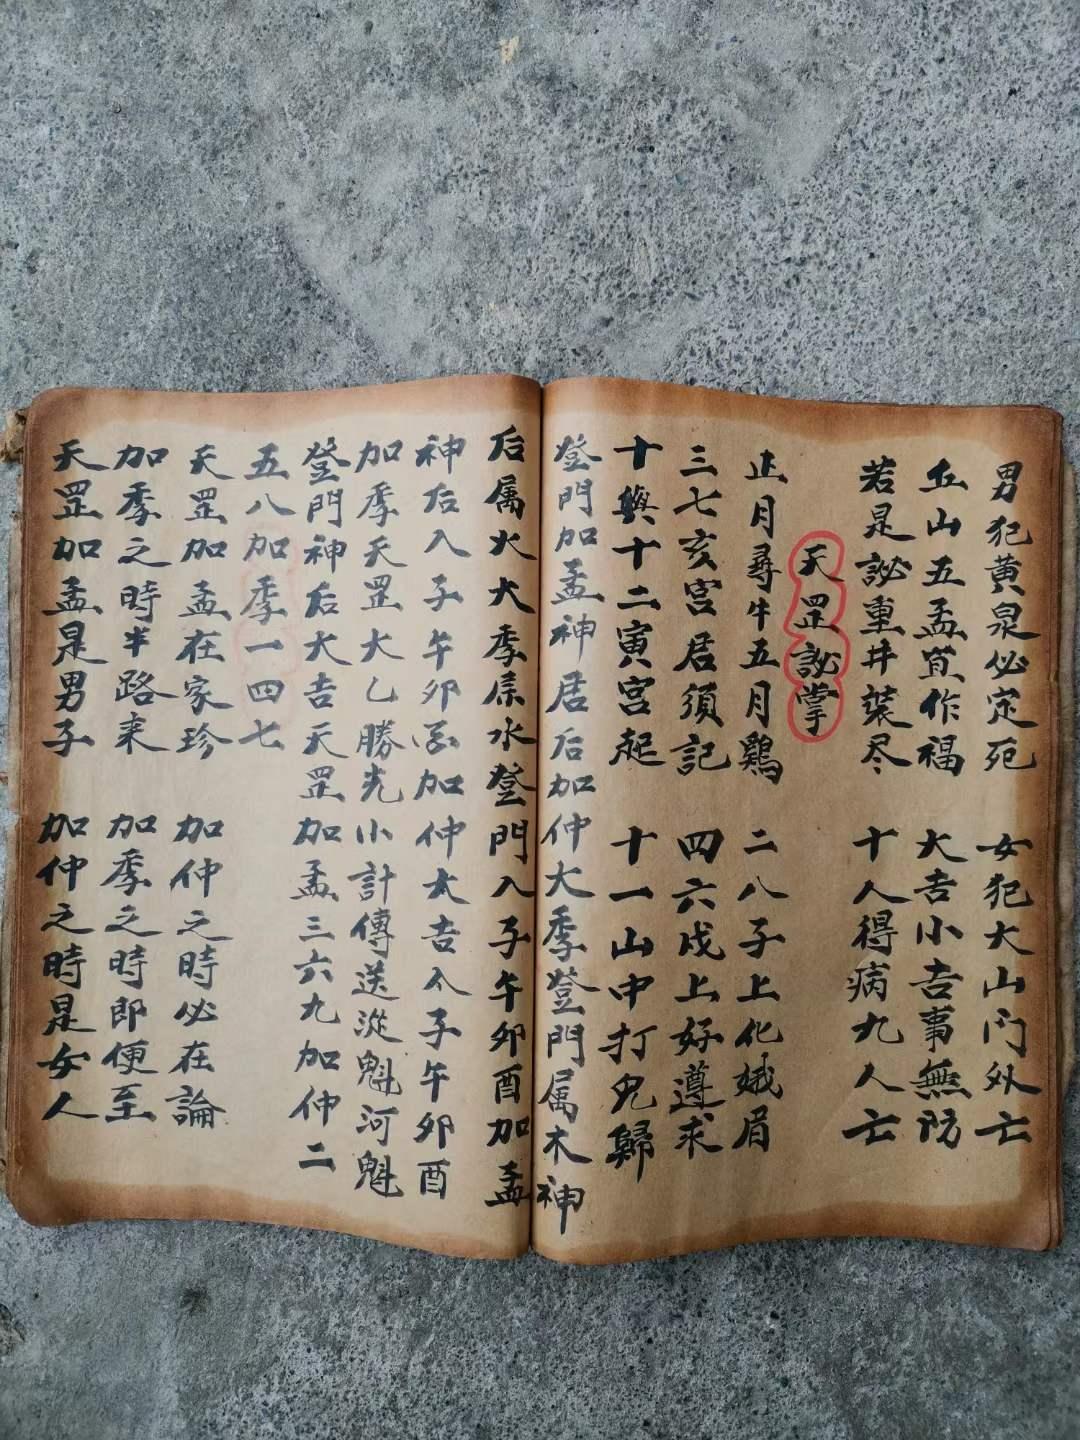 男犯黄泉必定死 女犯大山门外亡
丘山五孟宜作福 大吉小吉事無防
若是訟重井裝尽 十人得病九人亡
天罡訟掌
正月尋牛五月鷄 二八子上化娥眉
三七亥宮居須記 四六戌上好遵求
十與十二寅宮起 十一山中打鬼歸
登門加孟神居后加仲大季登門属木神
后属火大季屎水登門入子午卯酉加孟
神后入子午卯酉加仲太吉入子午卯酉
加季天罡大乙勝光小計傳送從魁河魁
登門神后大吉天罡加孟三六九加仲二
五八加季一四七
天罡加孟在家珍 加仲之時必在論
加季之時半路来 加季之時即便至
天罡加孟是男子 加仲之時是女人